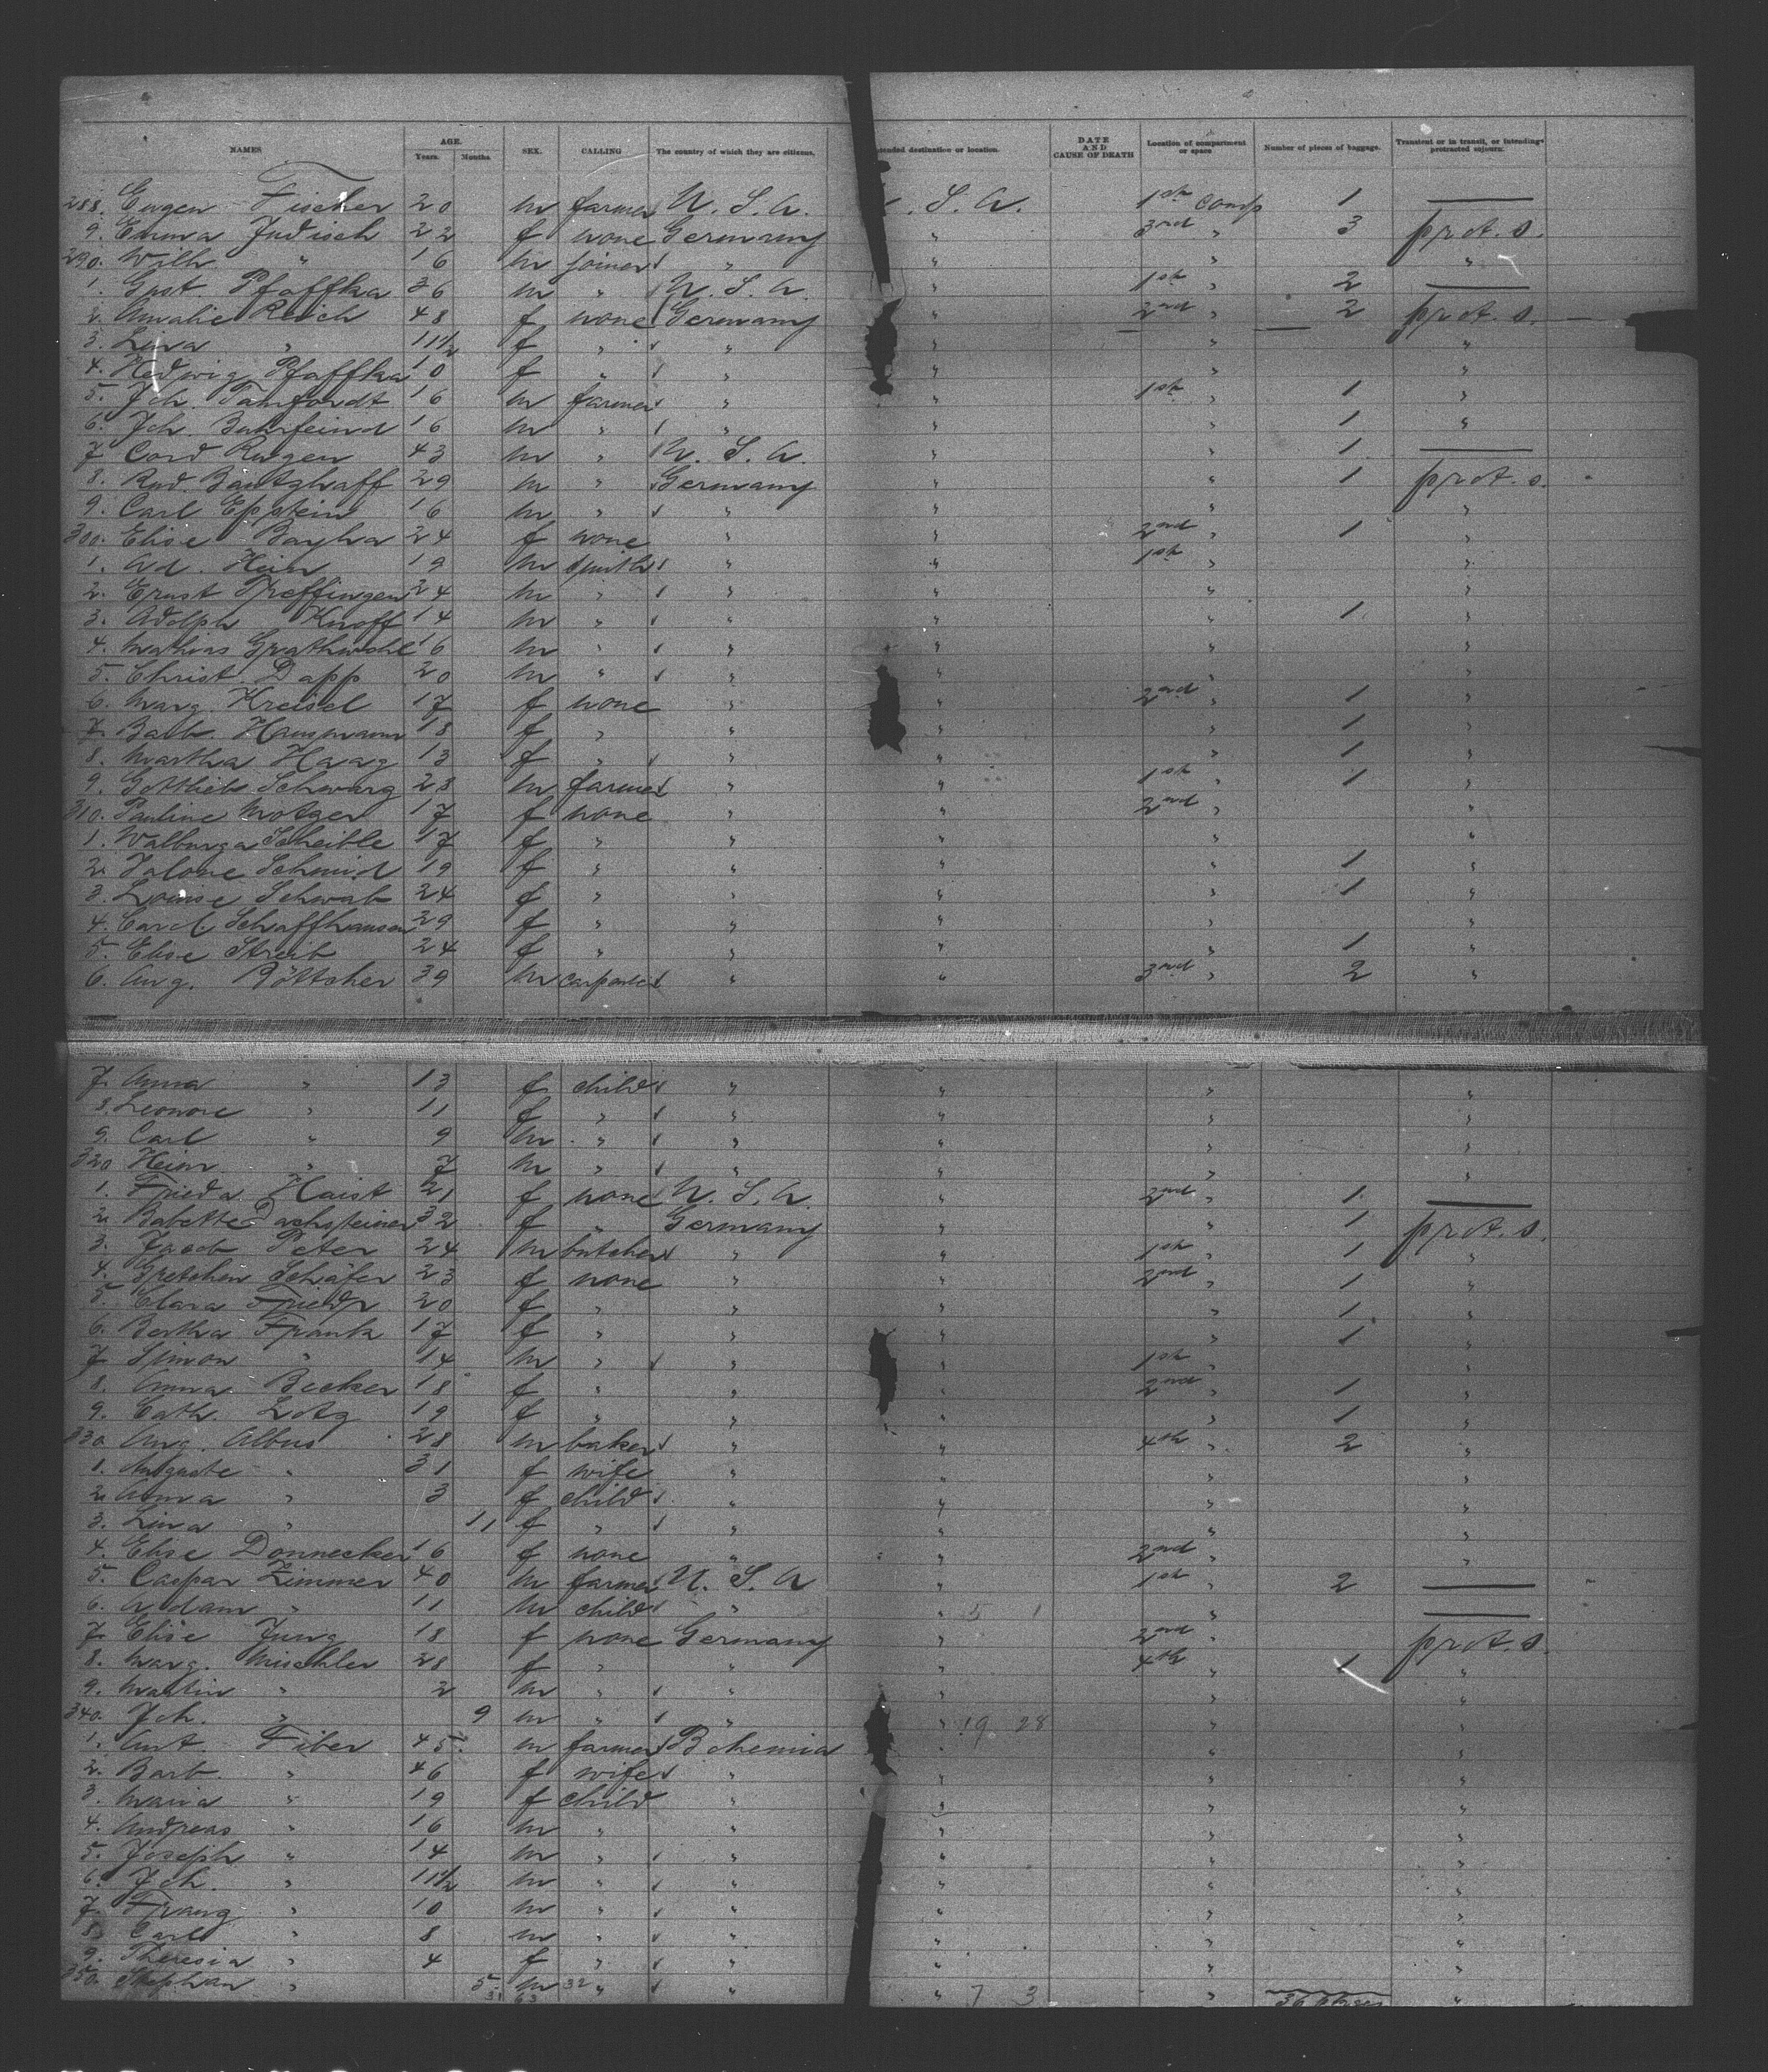 NAMES AGE. Years. Months. SEX. CALLING The country of which they are citizens. tended destination or location. DATE AND CAUSE OF DEATH Location of compartment or space Number of pieces of baggage. Transient or in transit, or intending protracted sojourn.
288. Eugen Fischer 20 m farmer U. S. A. . S. A. 1st comp 1 —
9. Emma Judisch 22 f none Germany " 3rd " 3 prot. s.
290. Wilh. " 16 m joiner " " " "
1. Gust. Pfaffka 36 m " U. S. A. " 1st " 2 —
2. Amalie Reich 48 f none Germany " 2nd " 2 prot. s.
3. Lina " 11½ f " " " " "
4. Hedwig Pfaffka 10 f " " " " "
5. Joh. Tamfordt 16 m farmer " " 1st " 1 "
6. Joh. Buhrfeind 16 m " " " " 1 "
7. Cord Rugen 43 m " U. S. A. " " 1 —
8. Rud. 29 m " Germany " " 1 prot. s.
9. Carl Eppstein 16 m " " " " "
300. Elise Bayha 24 f none " " 2nd " 1 "
1. Ad. Hein 19 m smith " " 1st " "
2. Ernst Treffinger 24 m " " " " "
3. Adolph Knoff 14 m " " " " 1 "
4. Mathias Grathwohl 16 m " " " " "
5. Christ. Dapp 20 m " " " " "
6. Marg. Kreisel 17 f none " " 2nd " 1 "
7. Barb. Hausmann 18 f " " " " 1 "
8. Martha Haag 13 f " " " " 1 "
9. Gottlieb Schwarz 23 m farmer " " 1st " 1 "
310. Pauline Motzer 17 f none " " 2nd " "
1. Walburga Scheible 17 f " " " " "
2. Salome Schmid 19 f " " " " 1 "
3. Louise Schwab 24 f " " " " 1 "
4. Carol. Schaffhauser 29 f " " " " "
5. Elise Streib 24 f " " " " 1 "
6. Aug. Böttcher 39 m carpenter " " 3rd " 2 "
7. Anna " 13 f child " " " "
8. Leonore " 11 f " " " " "
9. Carl " 9 m " " " " "
320 Heinr. " 7 m " " " " "
1. Frieda Haist 21 f none U. S. A. " 2nd " 1 —
2. Babette Dachsteiner 32 f " Germany " " 1 prot. s.
3. Jacob Peter 24 m butcher " " 1st " 1 "
4. Gretchen Schäfer 23 f none " " 2nd " 1 "
5. Clara Friedr. 20 f " " " " 1 "
6. Bertha Frank 17 f " " " " 1 "
7. Simon " 14 m " " " 1st " "
8. Anna Becker 18 f " " " 2nd " 1 "
9. Cath. Lotz 19 f " " " " 1 "
330 Aug. Albus 28 m baker " " 4th " 2 "
1. Auguste " 31 f wife " " " "
2. Anna " 3 f child " " " "
3. Lina " 11 f " " " " "
4. Elise Donnecker 16 f none " " 2nd " "
5. Caspar Zimmer 40 m farmer U. S. A " 1st " 2 —
6. Adam " 11 m child " " 5 1 " —
7. Elise Jung 18 f none Germany " 2nd " prot. s.
8. Marg. Mischler 28 f " " " 4th " 1 "
9. Martin " 2 m " " " " "
340. Joh. " 9 m " " " 19 28 " "
1. Ant. Fiber 45 m farmer Bohemia " " "
2. Barb. " 46 f wife " " " "
3. Maria " 19 f child " " " "
4. Andreas " 16 m " " " " "
5. Joseph " 14 m " " " " "
6. Joh. " 11½ m " " " " "
7. Franz " 10 m " " " " "
8. Carl " 8 m " " " " "
9. Theresia " 4 f " " " " "
350. Stephan " 5 m 32 " " " 7 3 " "
31 63